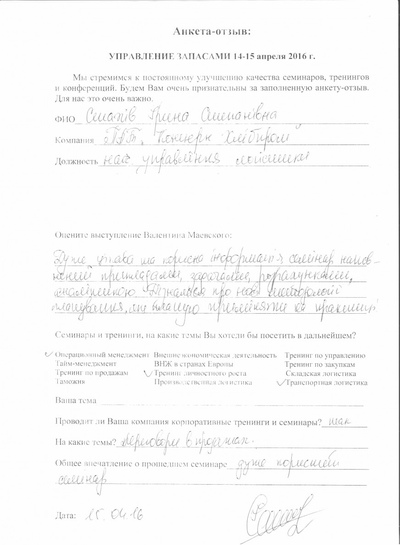 Анкета-отзыв:
УПРАВЛЕНИЕ ЗАПАСАМИ 14-15 апреля 2016 г.
Мы стремимся к постоянному улучшению качества семинаров, тренингов
и конференций. Будем Вам очень признательны за заполненную анкету-отзыв.
Для нас это очень важно.
ФИО Ірина Степанівна
Компания ПАТ "Концерн Хлібпром"
Должность нач управління логістики
Оцените выступление Валентина Маевского:
Дуже цікава та корисна інформація, семінар
прикладами, задачами, розрахунками,
про нові методології
планування,
Семинары и тренинги, на какие темы Вы хотели бы посетить в дальнейшем?
✓ Операционный менеджмент Внешнеэкономическая деятельность Тренинг по управлению
Тайм-менеджмент ВЭЖ в странах Европы Тренинг по закупкам
Тренинг по продажам ✓ Тренинг личностного роста Складская логистика
Таможня Производственная логистика ✓ Транспортная логистика
Ваша тема
Проводит ли Ваша компания корпоративные тренинги и семинары? так
На какие темы? переговори в продажах.
Общее впечатление о прошедшем семинаре дуже корисний
семінар
Дата: 15.04.16